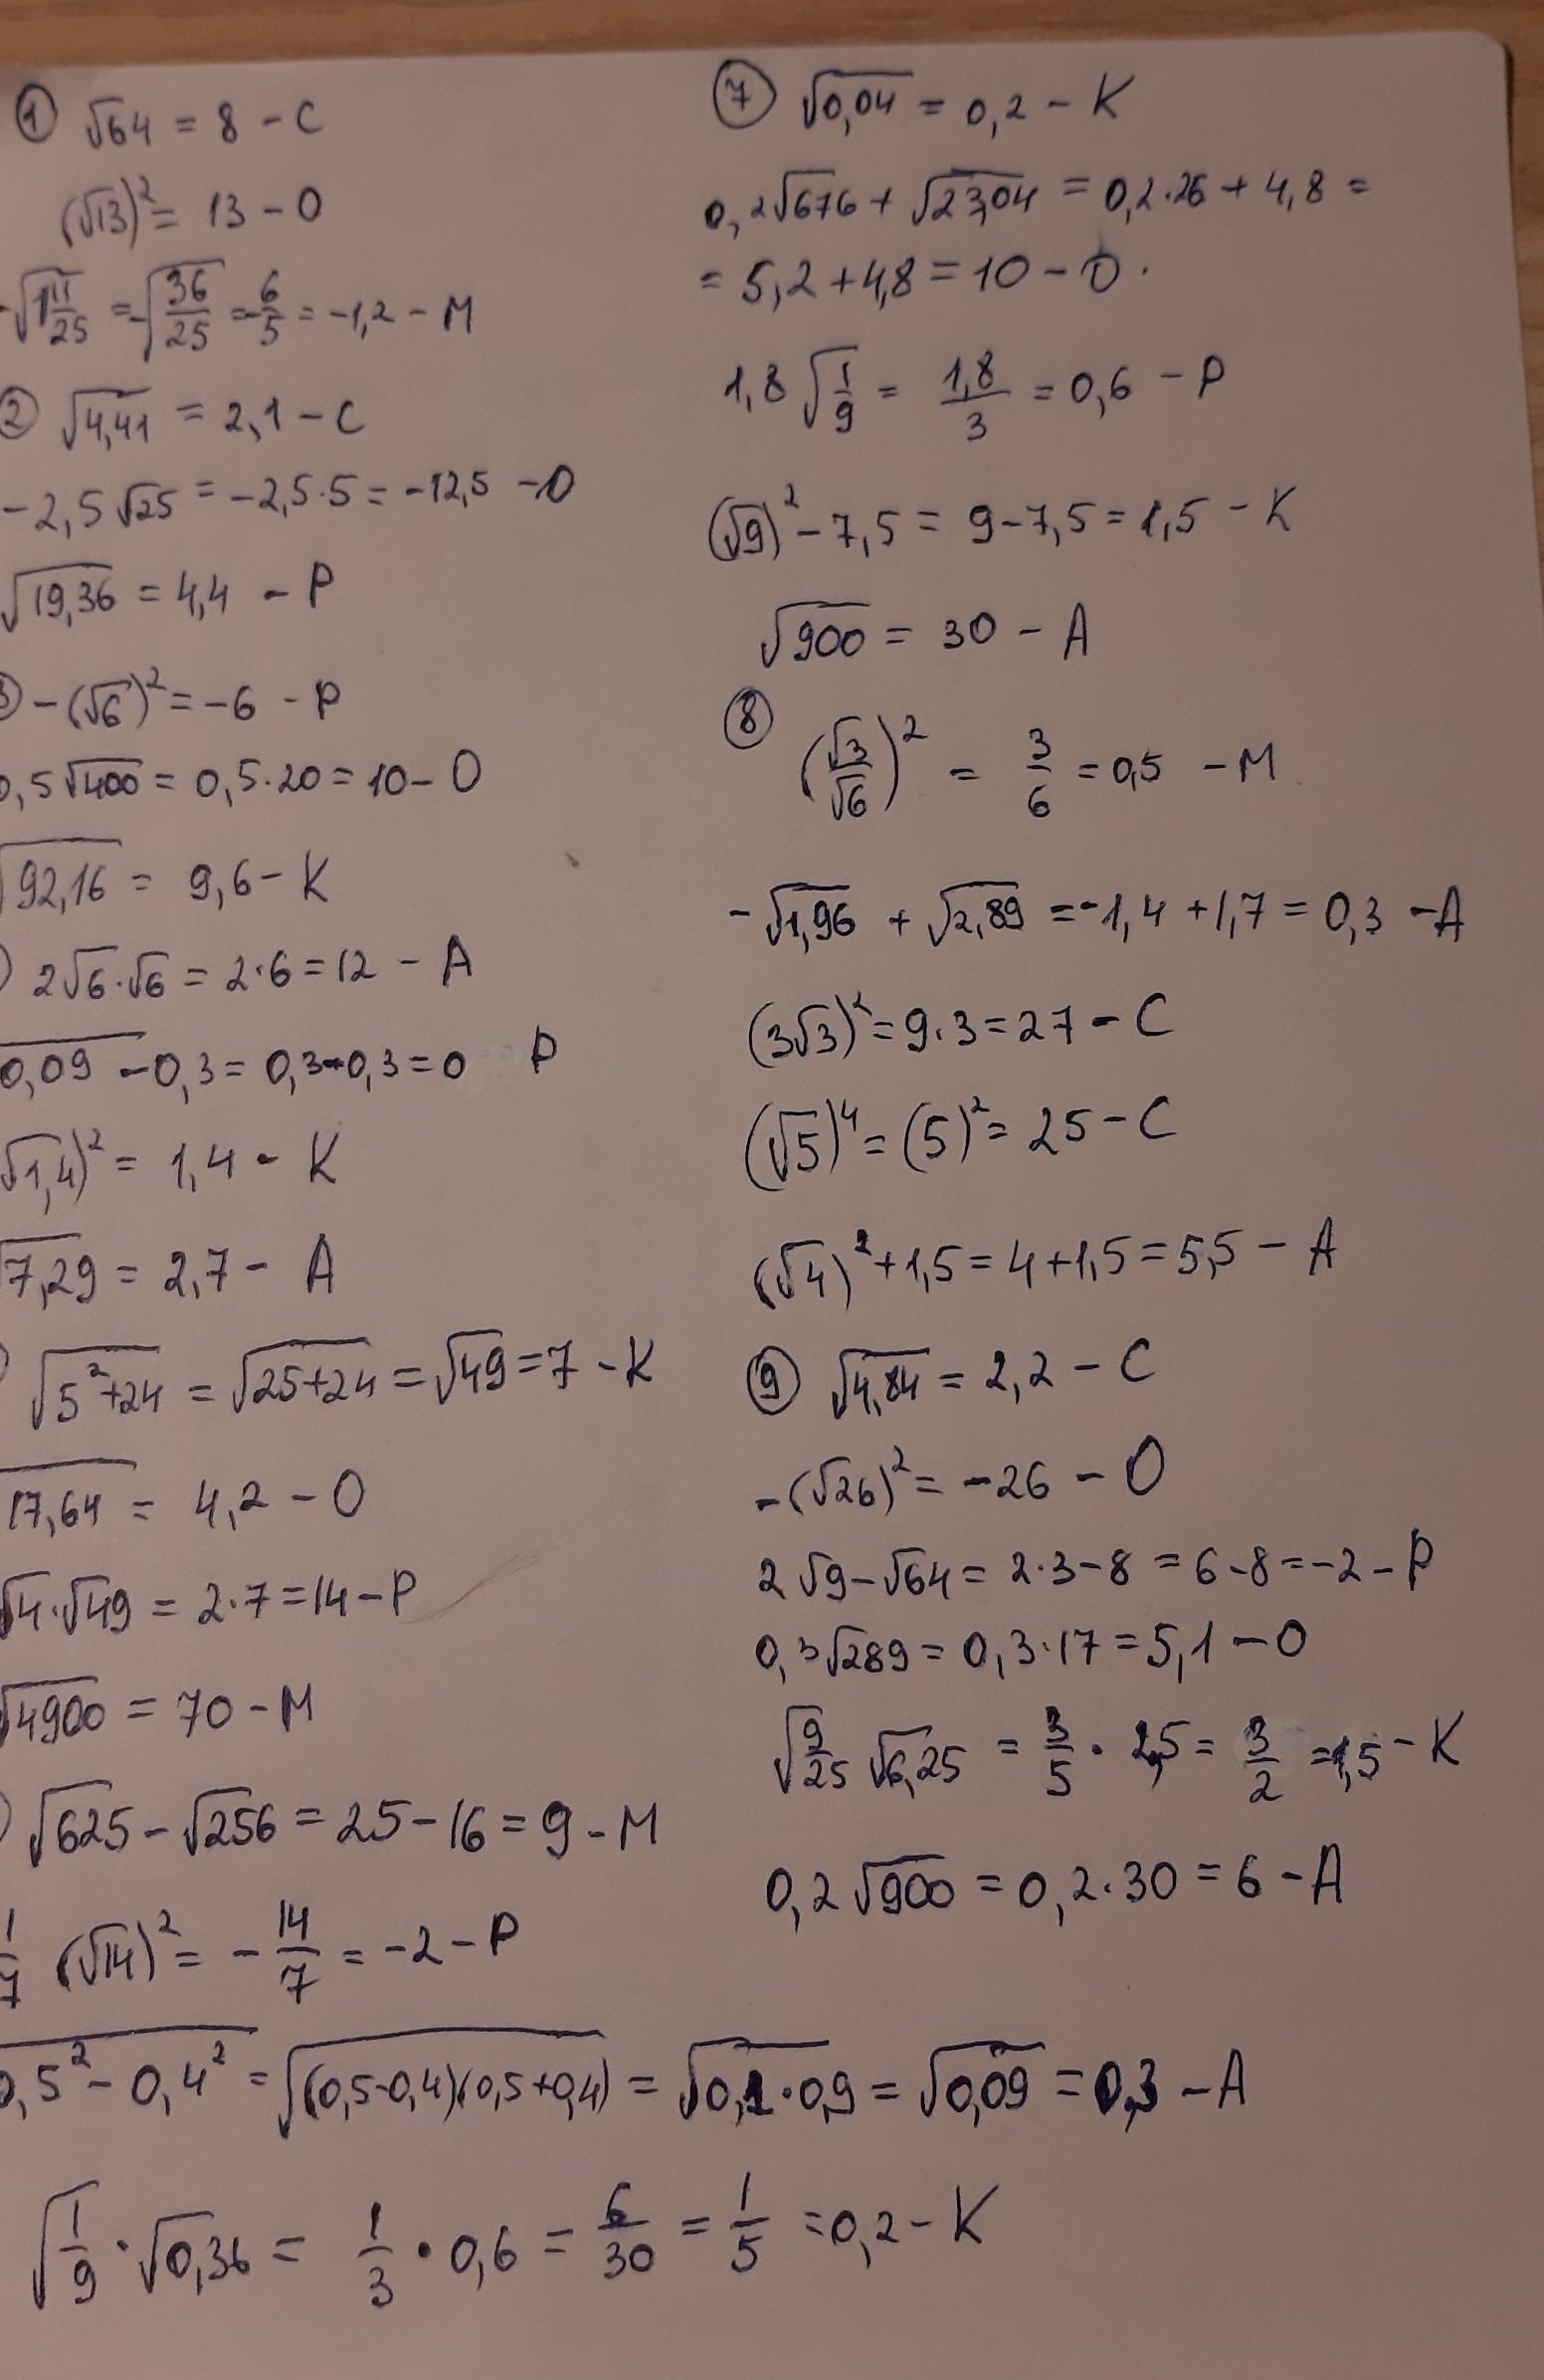 ① √64 = 8 - С
(√13)² = 13 - О
-√1 11/25 = -√36/25 = -6/5 = -1,2 - М
② √4,41 = 2,1 - С
-2,5√25 = -2,5·5 = -12,5 - О
√19,36 = 4,4 - Р
③ -(√6)² = -6 - Р
0,5√400 = 0,5·20 = 10 - О
√92,16 = 9,6 - К
2√6·√6 = 2·6 = 12 - А
√0,09 - 0,3 = 0,3-0,3 = 0 Р
(√1,4)² = 1,4 - К
√7,29 = 2,7 - А
√5²+24 = √25+24 = √49 = 7 - К
√17,64 = 4,2 - О
√4·√49 = 2·7 = 14 - Р
√4900 = 70 - М
√625 - √256 = 25 - 16 = 9 - М
1/7 (√14)² = -14/7 = -2 - Р
√0,5² - 0,4² = √(0,5-0,4)(0,5+0,4) = √0,1·0,9 = √0,09 = 0,3 - А
√1/9 · √0,36 = 1/3 · 0,6 = 6/30 = 1/5 = 0,2 - К
⑦ √0,04 = 0,2 - К
0,2√676 + √23,04 = 0,2·26 + 4,8 =
= 5,2 + 4,8 = 10 - О.
1,8√1/9 = 1,8/3 = 0,6 - Р
(√9)² - 7,5 = 9 - 7,5 = 1,5 - К
√900 = 30 - А
⑧ (√3/√6)² = 3/6 = 0,5 - М
-√1,96 + √2,89 = -1,4 + 1,7 = 0,3 - А
(3√3)² = 9·3 = 27 - С
(√5)⁴ = (5)² = 25 - С
(√4)² + 1,5 = 4 + 1,5 = 5,5 - А
⑨ √4,84 = 2,2 - С
-(√26)² = -26 - О
2√9 - √64 = 2·3 - 8 = 6 - 8 = -2 - Р
0,3√289 = 0,3·17 = 5,1 - О
√9/25 √6,25 = 3/5 · 2,5 = 3/2 = 1,5 - К
0,2√900 = 0,2·30 = 6 - А